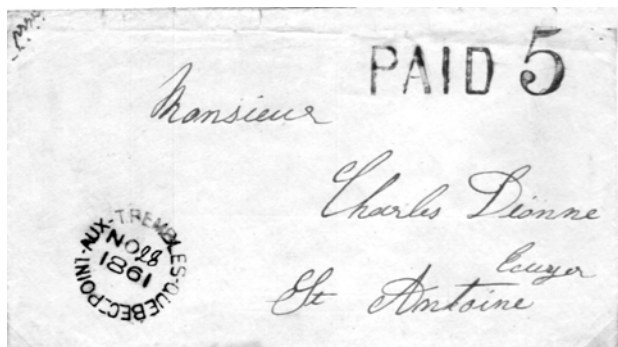 PAID 5
Monsieur
Charles Dionne
Ecuyer
St Antoine
POINT-AUX-TREMBLES-QUEBEC
NO 28
1861